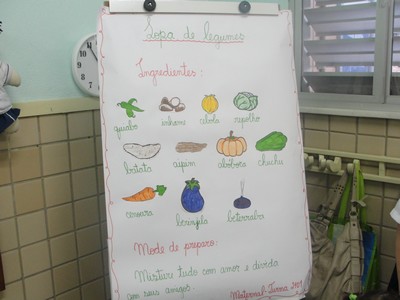 Sopa de legumes
Ingredientes:
quiabo inhame abóbora repolho
batata aipim abóbora chuchu
cenoura berinjela beterraba
Modo de preparo:
Misture tudo com amor e divida
com seus amigos.
Maternal Turma